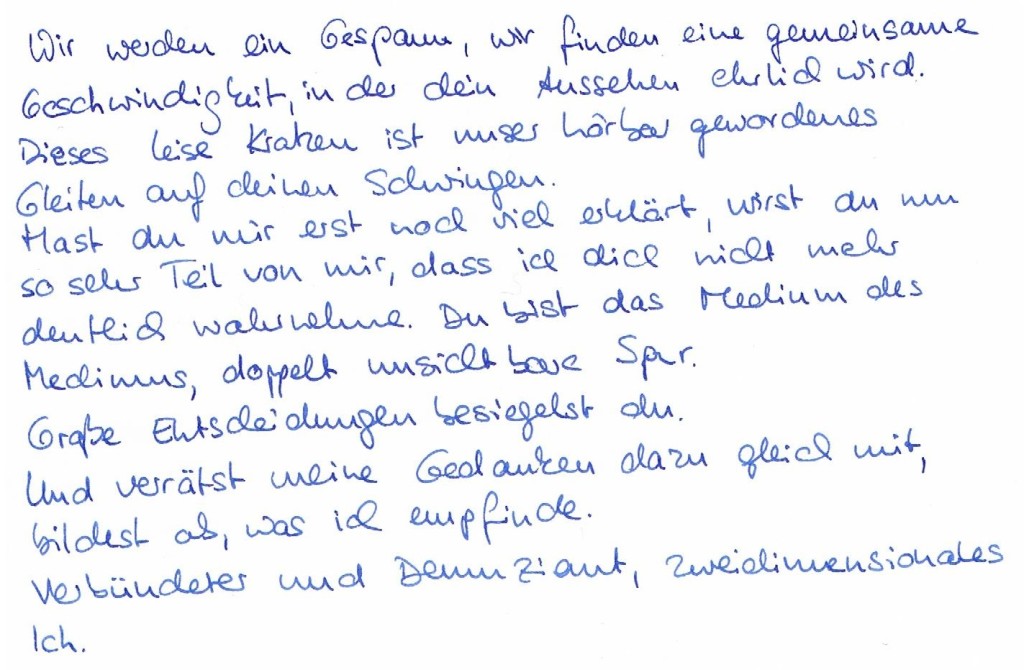 Wir werden ein Gespann, wir finden eine gemeinsame
Geschwindigkeit, in der dein Aussehen ehrlich wird.
Dieses leise Kratzen ist unser hörbar gewordenes
Gleiten auf deinen Schwingen.
Hast du mir erst noch viel erklärt, wirst du nun
so sehr Teil von mir, dass ich dich nicht mehr
deutlich wahrnehme. Du bist das Medium des
Mediums, doppelt unsichtbare Spur.
Große Entscheidungen besiegelst du.
Und verrätst meine Gedanken dazu gleich mit,
bildest ab, was ich empfinde.
Verbündeter und Denunziant, zweidimensionales
Ich.